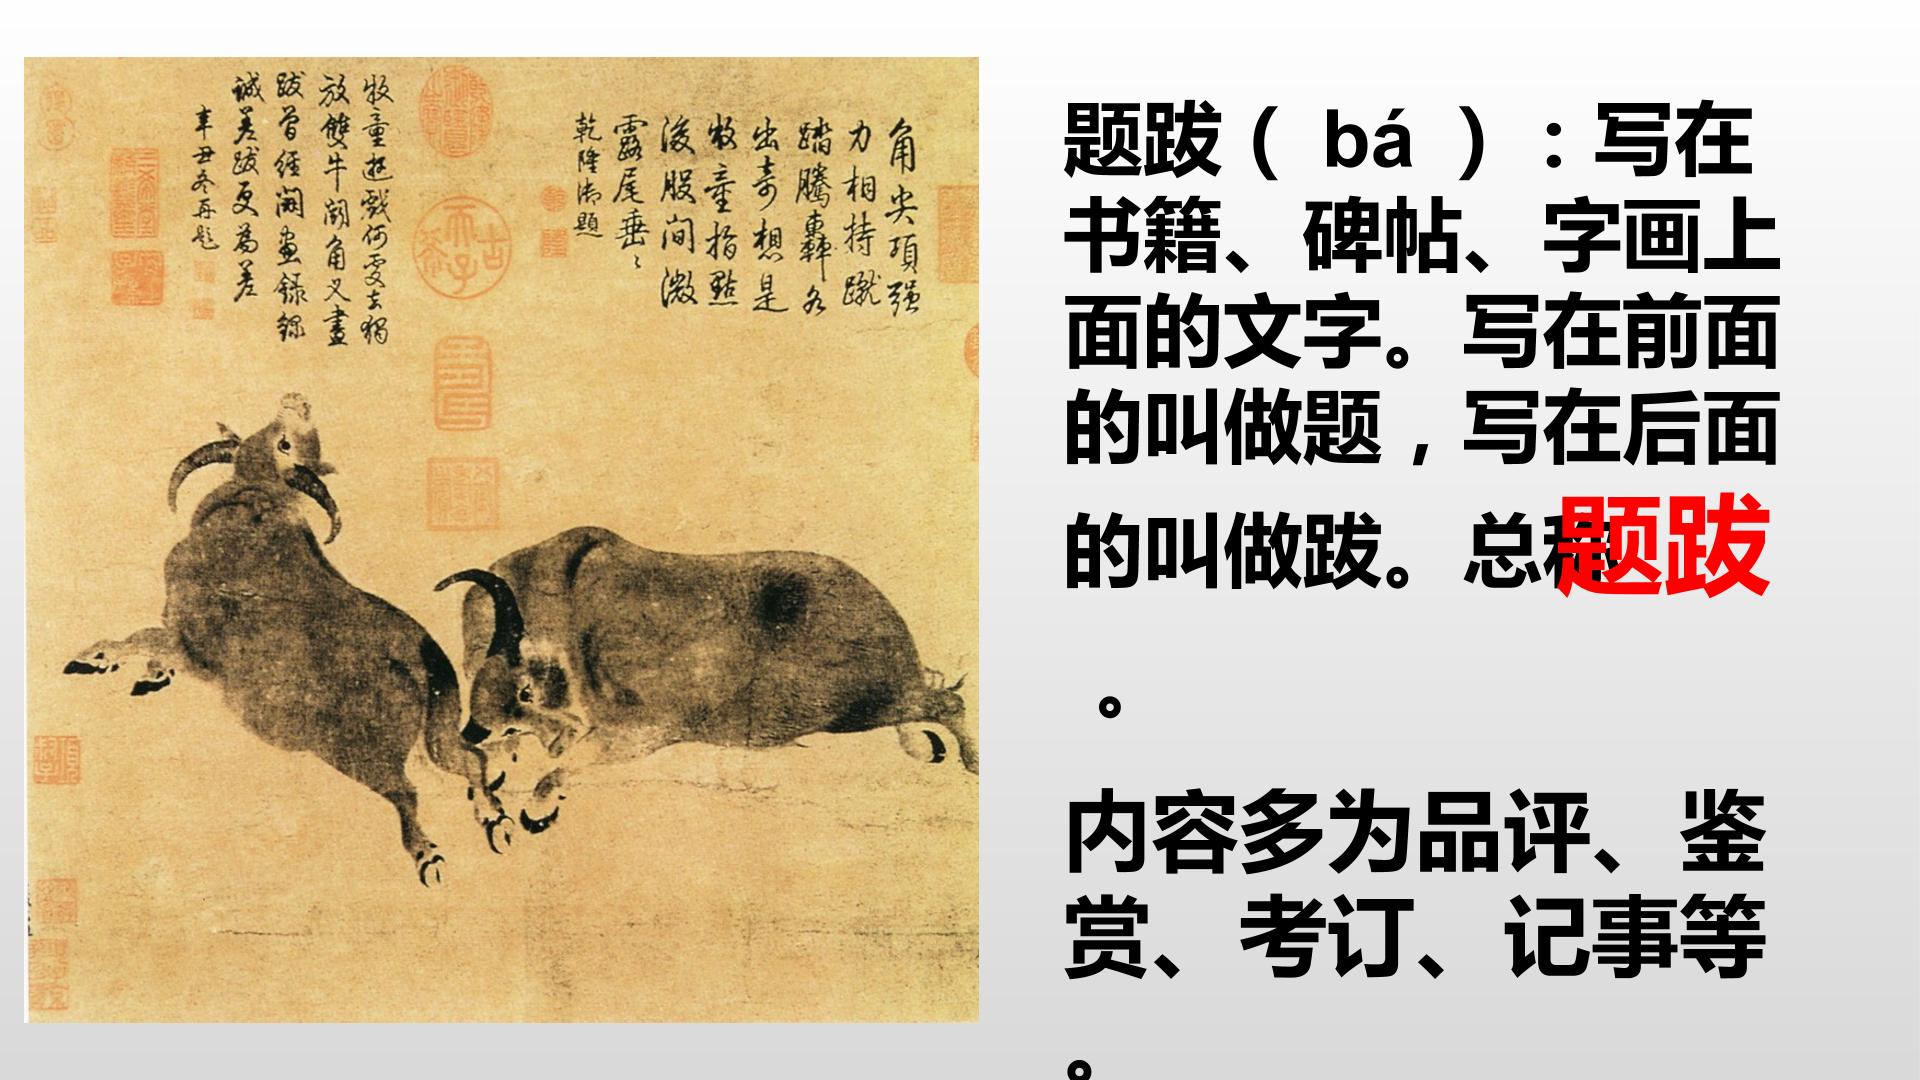 角尖項强
力相持蹴
踏騰轟各
出奇想是
牧童指點
後股間微
露尾垂垂
乾隆御題
牧童遊戲何處去獨
放雙牛鬬角叉畫
跋曾經闕畫錄錄
誠差跋更為差
辛丑冬再題
题跋（ bá ）：写在
书籍、碑帖、字画上
面的文字。写在前面
的叫做题，写在后面
的叫做跋。总称题跋
。
内容多为品评、鉴
赏、考订、记事等
。